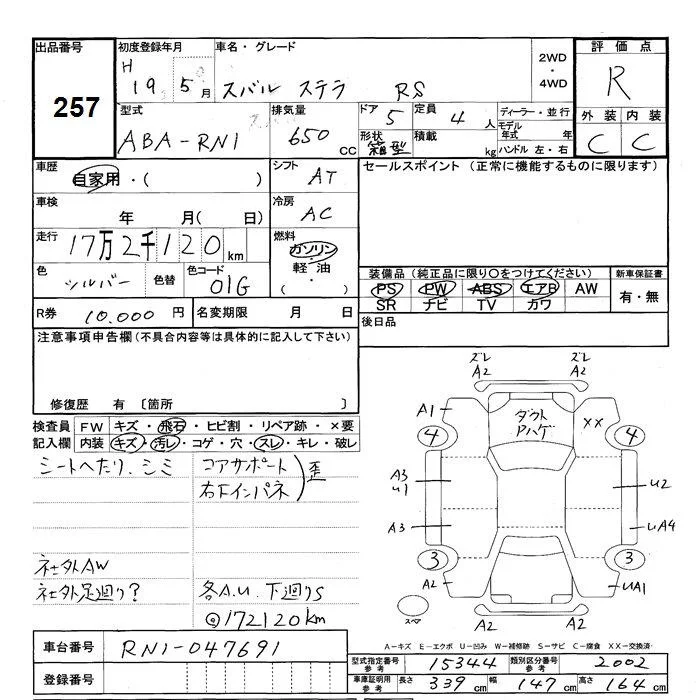 出品番号
257
初度登録年月
H 19 5 月
車名・グレード
スバル ステラ RS
2WD
・
4WD
評価点
R
外装 内装
C C
型式
ABA-RN1
排気量
650 CC
ドア 5
形状 箱型
定員 4 人
積載 kg
ディーラー・並行
モデル年式 年
ハンドル 左・右
車歴
自家用・( )
シフト
AT
セールスポイント (正常に機能するものに限ります)
車検
年 月( 日)
冷房
AC
走行
17万2千120 km
燃料
ガソリン
軽油
( ・ )
色
シルバー
色替
色コード
01G
装備品 (純正品に限り○をつけてください)
新車保証書
PS PW ABS エアB AW
SR ナビ TV カワ
有・無
R券 10.000 円
名変期限 月 日
後日品
注意事項申告欄 (不具合内容等は具体的に記入して下さい)
修復歴 有 〔箇所 〕
検査員 FW キズ・飛石・ヒビ割・リペア跡・×要
記入欄 内装 キズ・汚レ・コゲ・穴・スレ・キレ・破レ
シートへたり、シミ
コアサポート
右下インパネ
歪
社外AW
社外足廻り?
各A.U. 下廻りS
◎172120km
ズレ A2
ズレ A2
A1
ダウト
Aハゲ
XX
4
4
A3
U1
U2
A3
UA4
3
3
A2
UA1
A2
A2
スペア
A-キズ E-エクボ U-凹み W-補修跡 S-サビ C-腐食 XX-交換済
車台番号 RN1-047691
登録番号
型式指定番号 参考 15344
類別区分番号 参考 2002
車庫証明用 参考 長さ 339 cm 幅 147 cm 高さ 164 cm